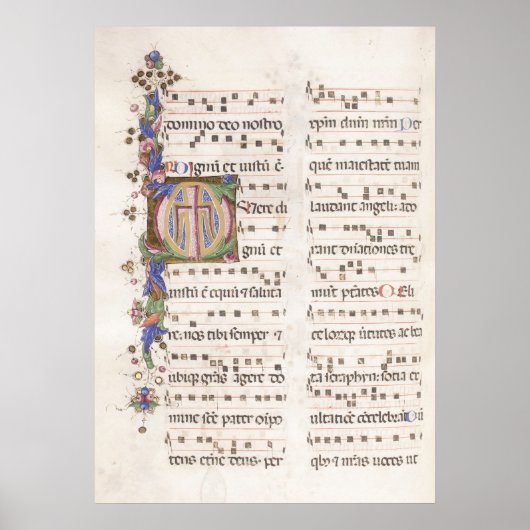 domino deo nostro
Dignu et iustu e.
Vere di
gnu et
iustu e equu & saluta
re: nos tibi semper &
ubiq gras agere do
mine sce pater oipo
tens eterne deus. per
xpm dnm nrm Per
que maiestate tuam
laudant angeli: ado
rant dnationes tre
mut ptates Celi
celorq uirtutes ac bea
ta seraphyn: sotia ex
ultatioe cocelebrat Cu
qbs & nras uoces ut